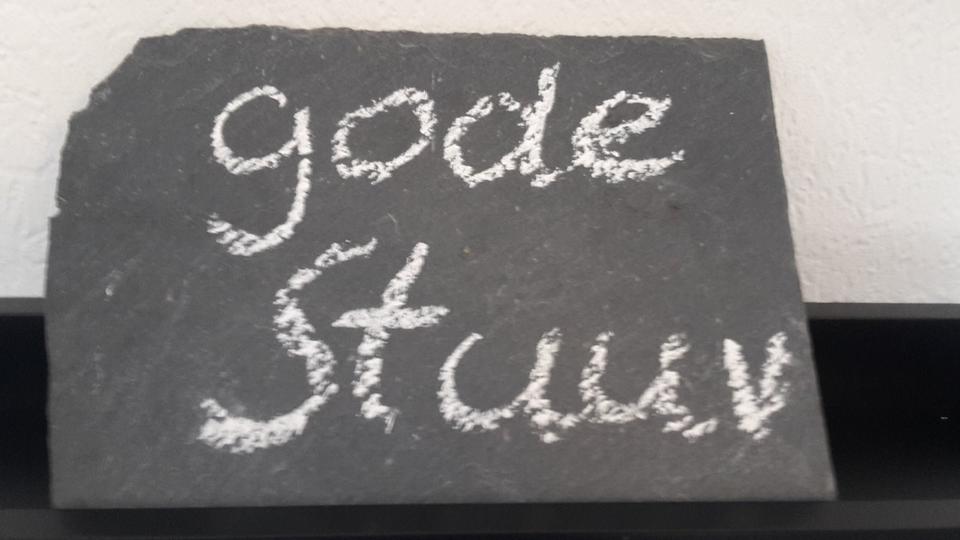 gode
Stuuv